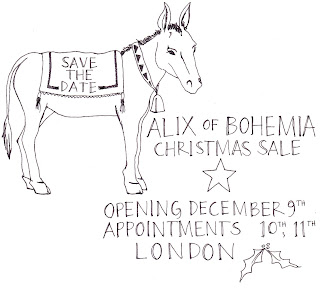 SAVE
THE
DATE
ALIX OF BOHEMIA
CHRISTMAS SALE
OPENING DECEMBER 9TH
APPOINTMENTS 10TH, 11TH
LONDON